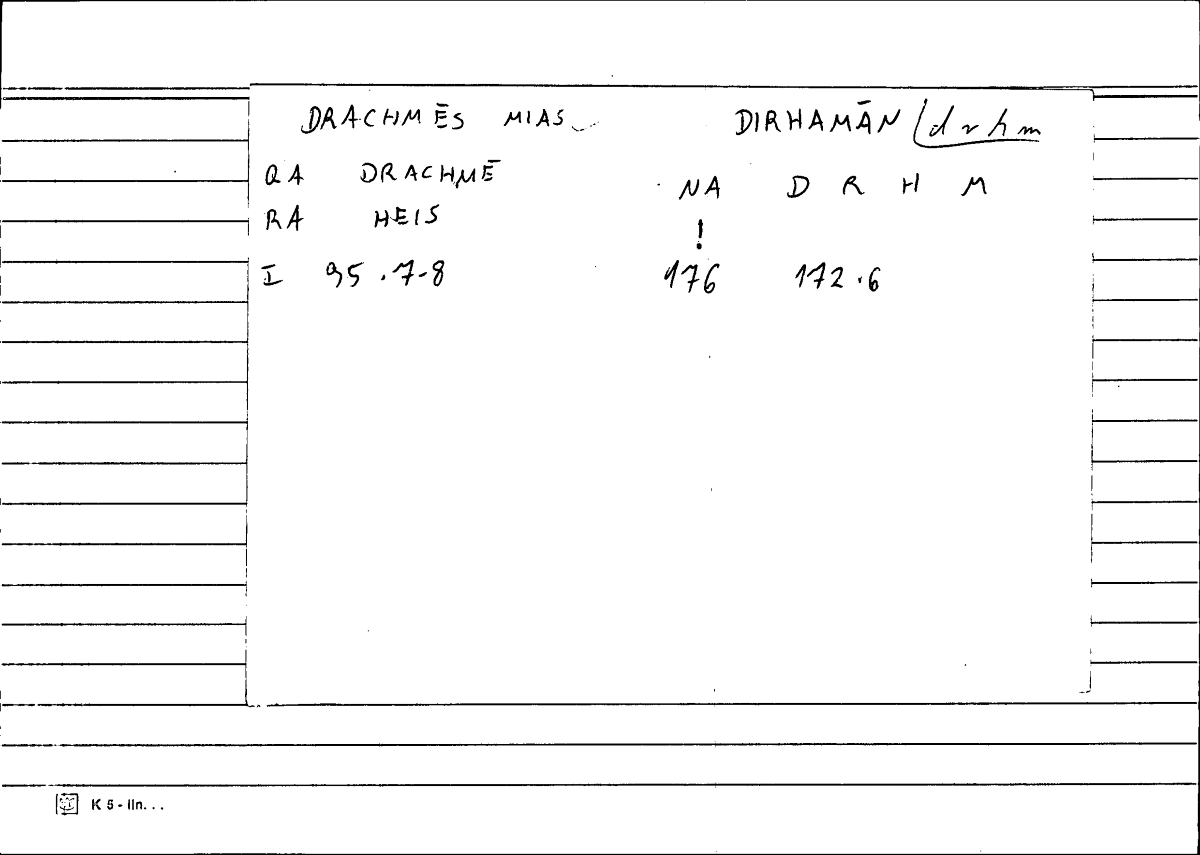 DRACHMĒS MIAS DIRHAMĀN drhm
QA DRACHMĒ NA D R H M
RA HEIS !
I 95.7-8 176 172.6
K 5 - lin. . .